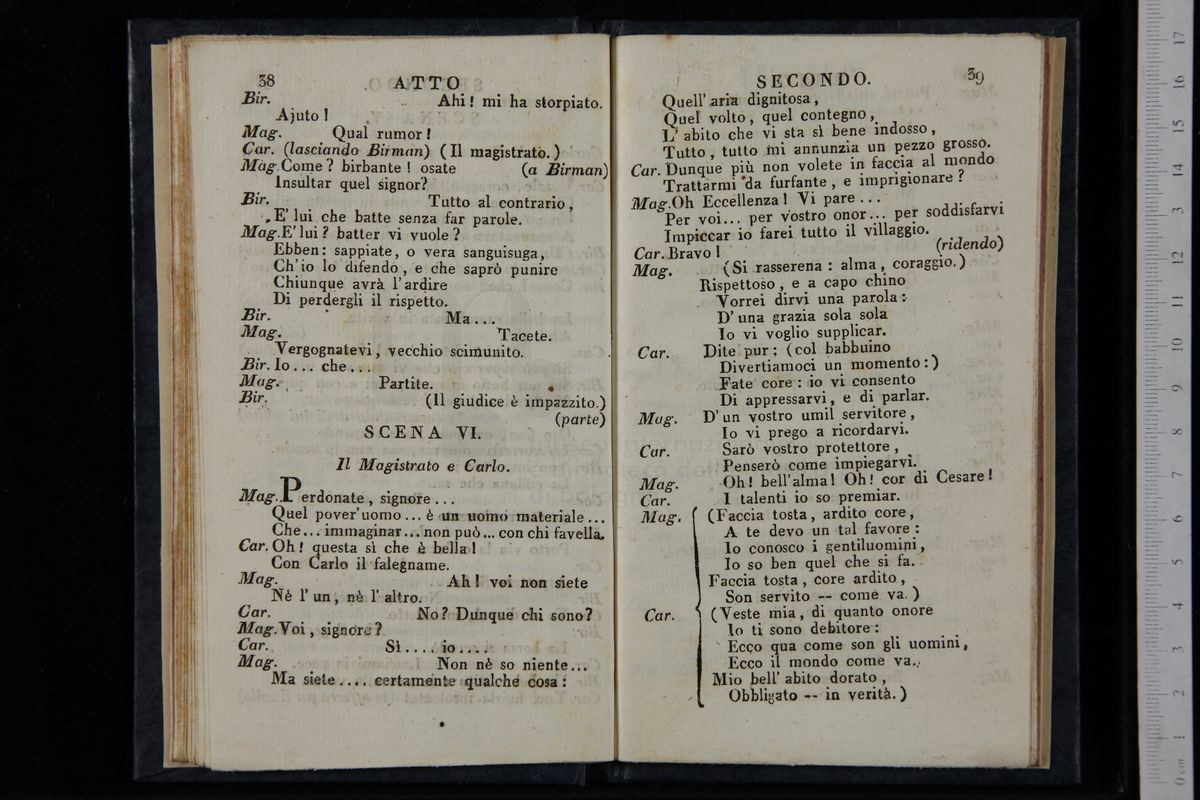 38 ATTO
Bir. Ahi! mi ha storpiato.
Ajuto!
Mag. Qual rumor!
Car. (lasciando Birman) (Il magistrato.)
Mag. Come? birbante! osate (a Birman)
Insultar quel signor?
Bir. Tutto al contrario,
E' lui che batte senza far parole.
Mag. E' lui? batter vi vuole?
Ebben: sappiate, o vera sanguisuga,
Ch'io lo difendo, e che saprò punire
Chiunque avrà l'ardire
Di perdergli il rispetto.
Bir. Ma...
Mag. Tacete.
Vergognatevi, vecchio scimunito.
Bir. Io... che...
Mag. Partite.
Bir. (Il giudice è impazzito.)
(parte)
SCENA VI.
Il Magistrato e Carlo.
Mag. Perdonate, signore...
Quel pover'uomo... è un uomo materiale...
Che... immaginar... non può... con chi favella.
Car. Oh! questa sì che è bella!
Con Carlo il falegname.
Mag. Ah! voi non siete
Nè l'un, nè l'altro.
Car. No? Dunque chi sono?
Mag. Voi, signore?
Car. Sì.... io....
Mag. Non nè so niente...
Ma siete.... certamente qualche cosa:
SECONDO. 39
Quell'aria dignitosa,
Quel volto, quel contegno,
L'abito che vi sta sì bene indosso,
Tutto, tutto mi annunzia un pezzo grosso.
Car. Dunque più non volete in faccia al mondo
Trattarmi da furfante, e imprigionare?
Mag. Oh Eccellenza! Vi pare...
Per voi... per vostro onor... per soddisfarvi
Impiccar io farei tutto il villaggio.
Car. Bravo! (ridendo)
Mag. (Si rasserena: alma, coraggio.)
Rispettoso, e a capo chino
Vorrei dirvi una parola:
D'una grazia sola sola
Io vi voglio supplicar.
Car. Dite pur: (col babbuino
Divertiamoci un momento:)
Fate core: io vi consento
Di appressarvi, e di parlar.
Mag. D'un vostro umil servitore,
Io vi prego a ricordarvi.
Car. Sarò vostro protettore,
Penserò come impiegarvi.
Mag. Oh! bell'alma! Oh! cor di Cesare!
Car. I talenti io so premiar.
Mag. (Faccia tosta, ardito core,
A te devo un tal favore:
Io conosco i gentiluomini,
Io so ben quel che si fa.
Faccia tosta, core ardito,
Son servito -- come va.)
Car. (Veste mia, di quanto onore
Io ti sono debitore:
Ecco qua come son gli uomini,
Ecco il mondo come va.
Mio bell'abito dorato,
Obbligato -- in verità.)
0 cm 1 2 3 4 5 6 7 8 9 10 11 12 13 14 15 16 17